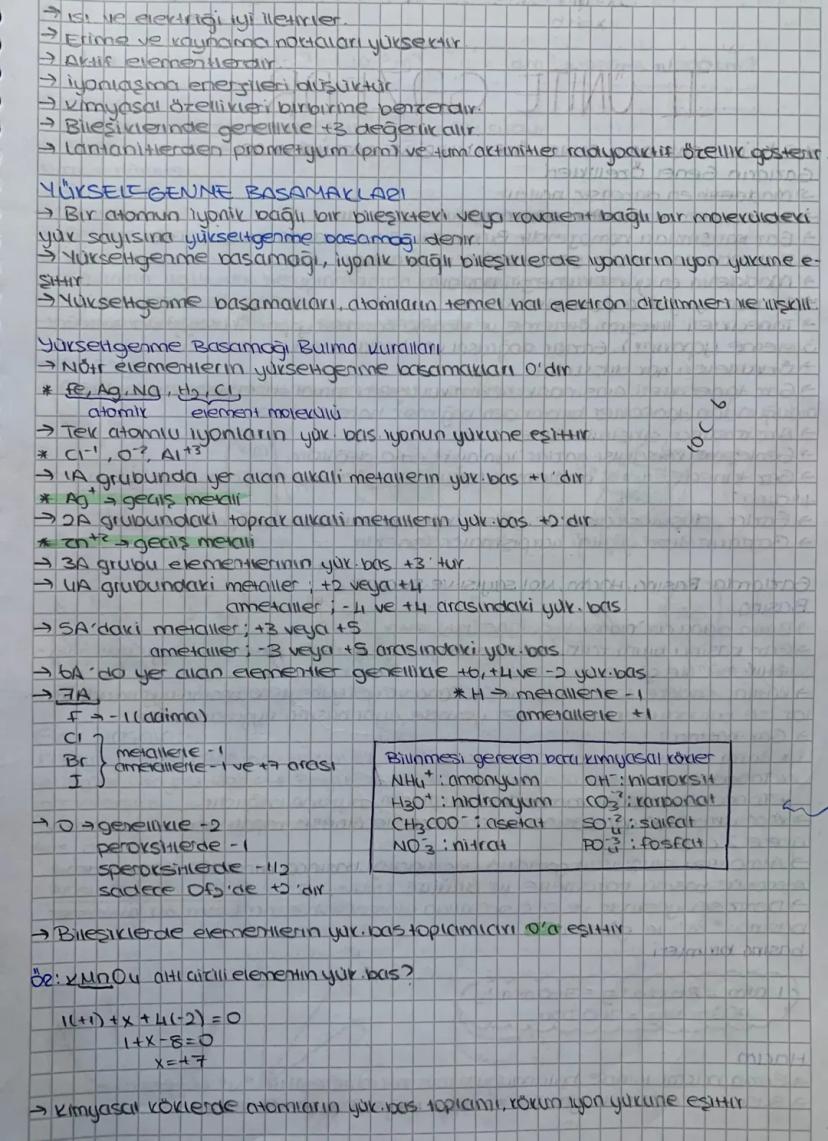 → Isı ve elektriği iyi iletirler.
→ Erime ve kaynama noktaları yüksektir
→ Aktif elementlerdir.
→ iyonlaşma enerjileri düşüktür
→ Kimyasal özellikleri birbirine benzerdir.
→ Bileşiklerinde genellikle +3 değerlik alır
→ Lantanitlerden prometyum (pm) ve tüm aktinitler radyoaktif özellik gösterir
YÜKSELTGENME BASAMAKLARI
→ Bir atomun iyonik bağlı bir bileşikteki veya kovalent bağlı bir moleküldeki
yük sayısına yükseltgenme basamağı denir.
→ Yükseltgenme basamağı, iyonik bağlı bileşiklerde iyonların iyon yüküne e-
şittir
→ Yükseltgenme basamakları, atomların temel hal elektron dizilimleri ile ilişkili
Yükseltgenme Basamağı Bulma Kuralları
→ Nötr elementlerin yükseltgenme basamakları 0'dır
* Fe, Ag, Na, H₂, Cl
atomik element molekülü
→ Tek atomlu iyonların yük. bas iyonun yüküne eşittir
* Cl⁻¹, O⁻², Al⁺³
→ 1A grubunda yer alan alkali metallerin yük. bas +1'dir
* Ag⁺ → geçiş metali
→ 2A grubundaki toprak alkali metallerin yük. bas +2'dir
* Zn⁺² → geçiş metali
→ 3A grubu elementlerinin yük. bas +3'tür
→ 4A grubundaki metaller; +2 veya +4
ametaller; -4 ve +4 arasındaki yük. bas
→ 5A'daki metaller; +3 veya +5
ametaller; -3 veya +5 arasındaki yük. bas
→ 6A'da yer alan elementler genellikle +6, +4 ve -2 yük. bas
→ 7A
F → -1 (daima)
Cl
Br
I
metallerle -1
ametallerle -1 ve +7 arası
* H → metallerle -1
ametallerle +1
Bilinmesi gereken bazı kimyasal kökler
NH₄⁺: amonyum OH⁻: hidroksit
H₃O⁺: hidronyum CO₃⁻²: karbonat
CH₃COO⁻: asetat SO₄⁻²: sülfat
NO₃⁻: nitrat PO₄⁻³: fosfat
→ O → genellikle -2
peroksitlerde -1
süperoksitlerde -1/2
sadece OF₂'de +2'dir
→ Bileşiklerde elementlerin yük. bas toplamları 0'a eşittir
Ör: KMnO₄ altı çizili elementin yük. bas?
1(+1) + x + 4(-2) = 0
1 + x - 8 = 0
x = +7
→ Kimyasal köklerde atomların yük. bas toplamı, kökün iyon yüküne eşittir